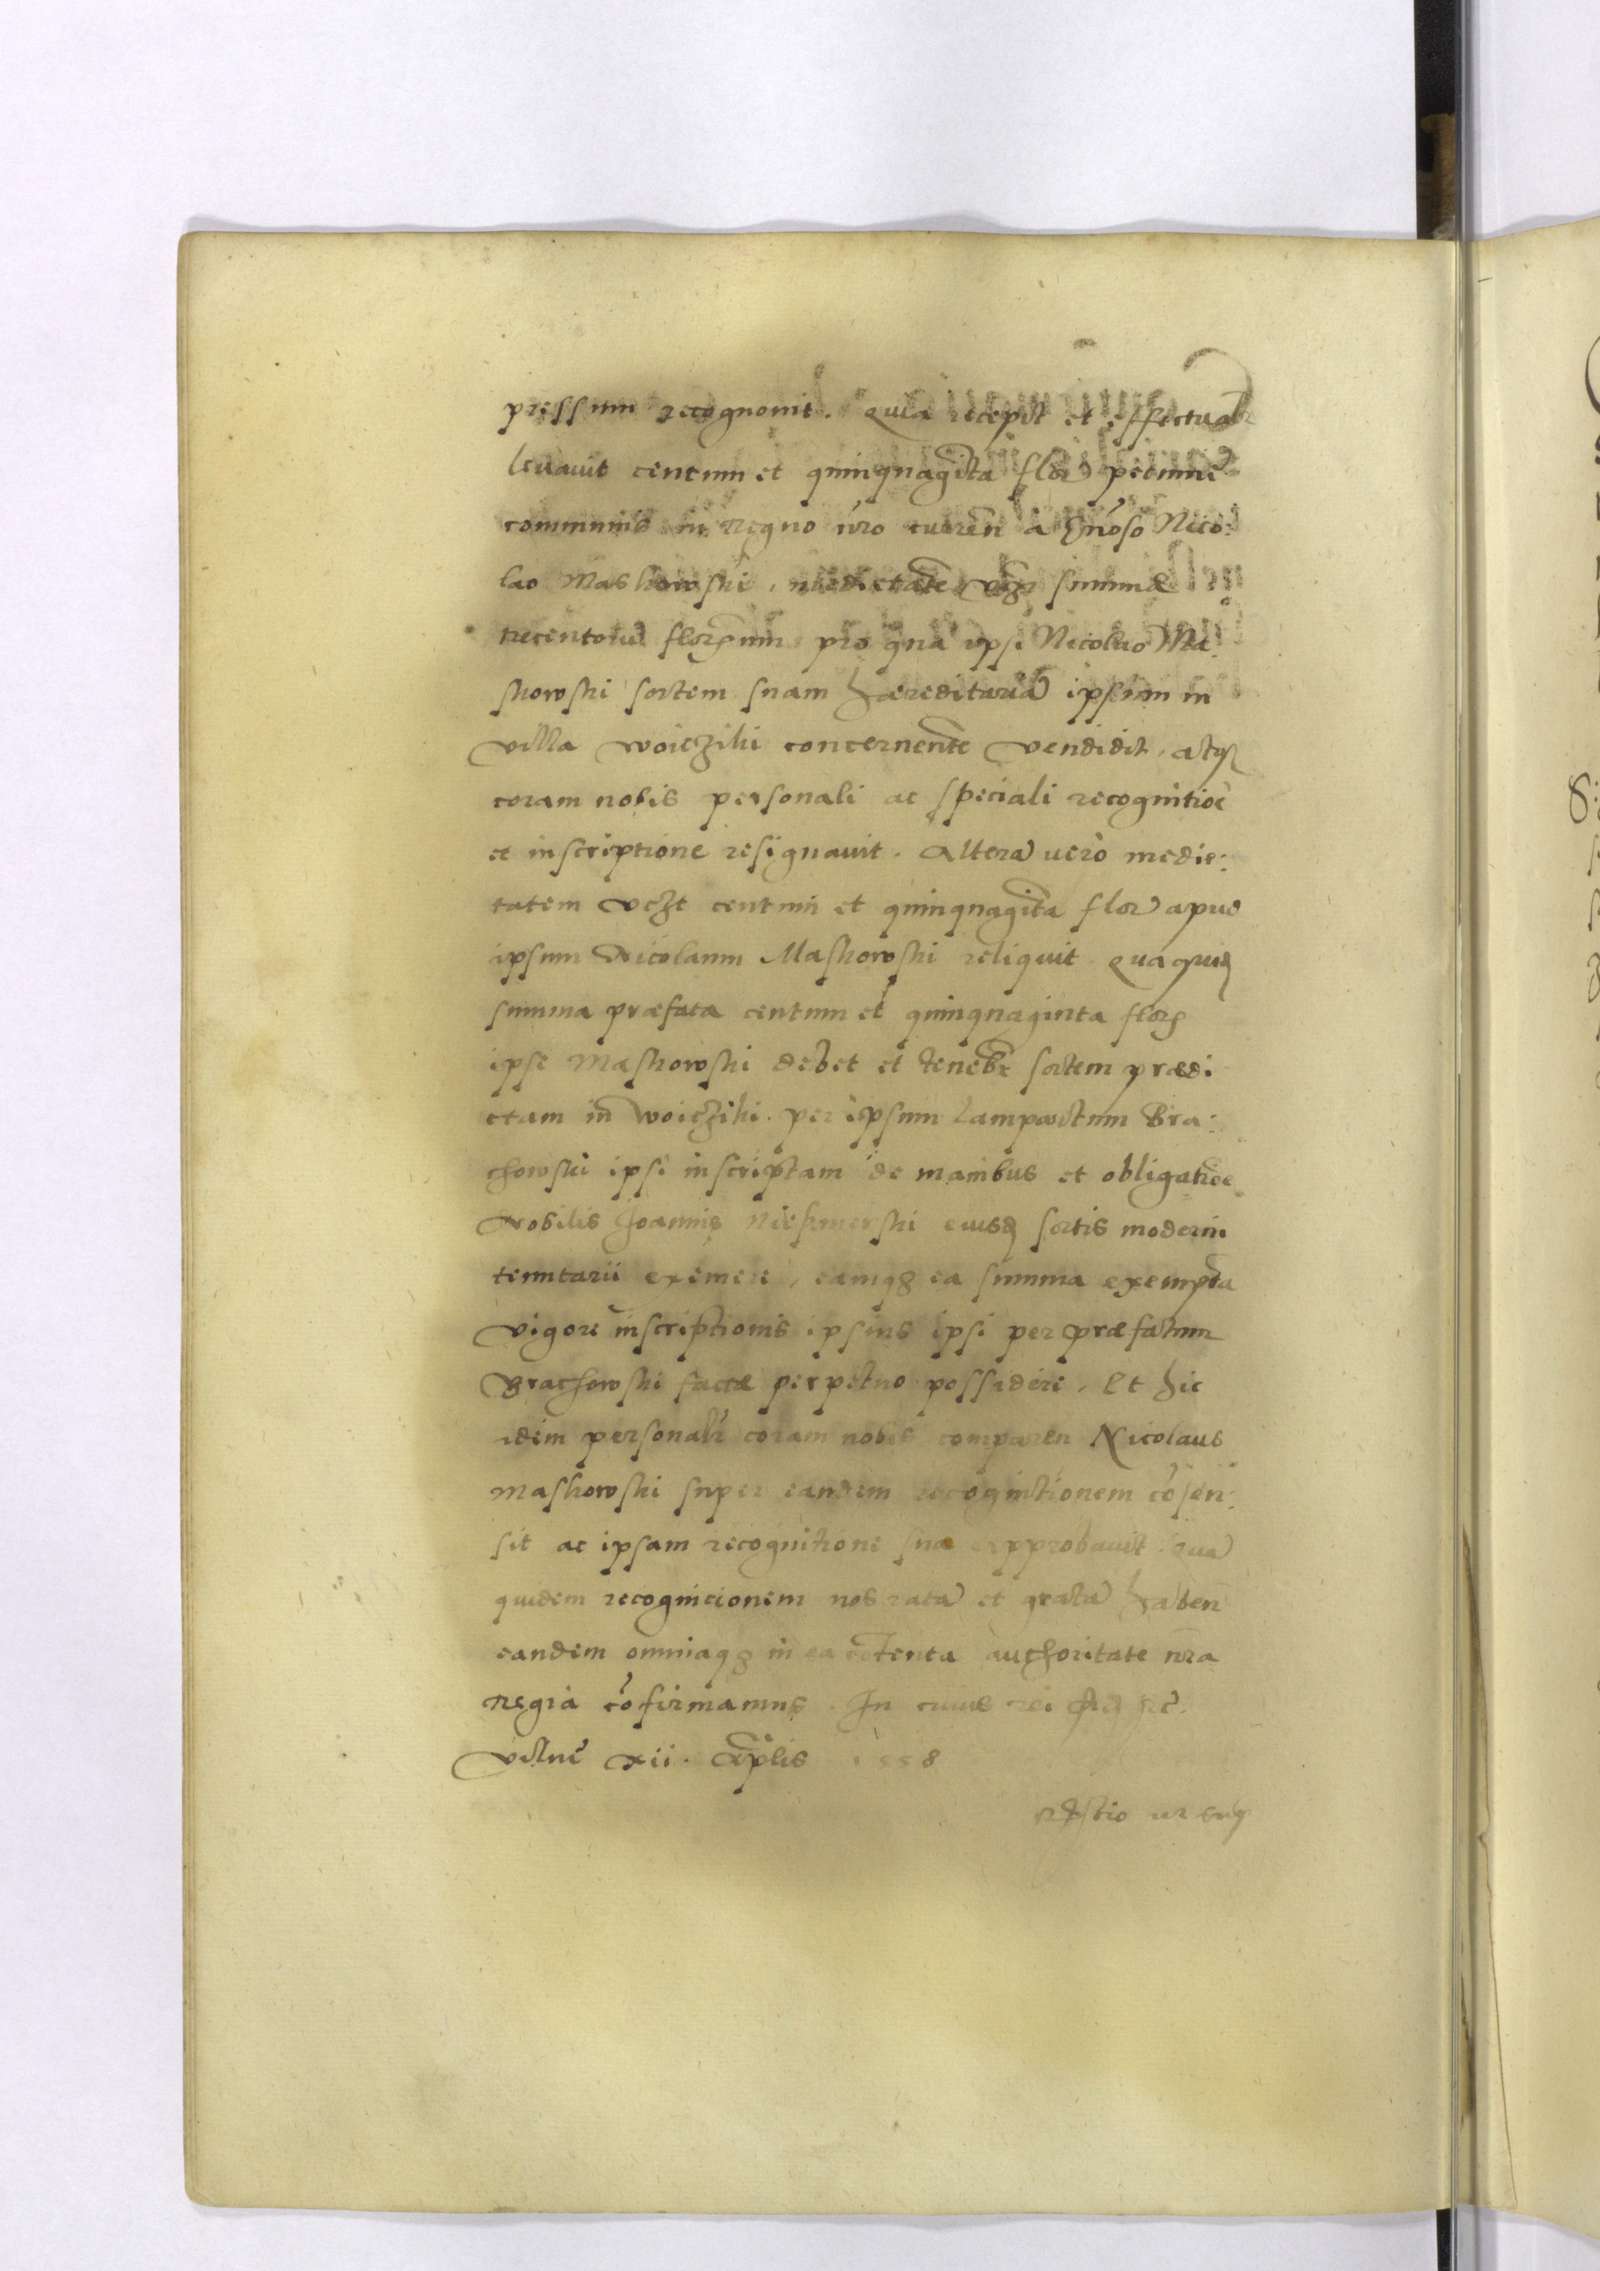 pressum recognovit. Quia recepit et effectualr
levavit centum et quinquagīta flor pecuniē
communis in regno nr̄o curren̄ a Gn̄oso Nico:
lao Maskowski, medietatē vcȝ summæ
trecentorū florenum pro qua ipsi Nicolao Ma:
skowski sortem suam hæreditariā ipsum in
villa woiczihi concernentē vendidit, atqȝ
coram nobis personali ac speciali recognitiōē
et inscriptione resignavit. Alterā vero medie:
tatem vcȝt centum et quinquagīta flor apud
ipsum Nicolaum Maskowski reliquit. Qua quidȝ
summa præfata centum et quinquaginta flor
ipse Maskowski debet et tenebr̄ sortem prædi
ctam in woiczihi per ipsum Lampartum Bra:
chowski ipsi inscriptam de manibus et obligatiōē
Nobilis Joannis eiusdȝ sortis moderni
tenutarii eximere, eamqȝ ea summa exempta
vigore inscriptionis ipsius ipsi per præfatum
Brachowski factæ perpetuo possidere. Et hic
idem personalr̄ coram nobis comparen Nicolaus
Maskowski super eandem recognitionem cōsen:
sit ac ipsam recognitione sua approbavit. Quā
quidem recognicionem nos ratā et gratā haben̄
eandem omniaqȝ in ea cōtenta authoritate nr̄a
regia cōfirmamus. In cuius rei fidȝ rc̄.
Vilnē xii. Aplis 1558